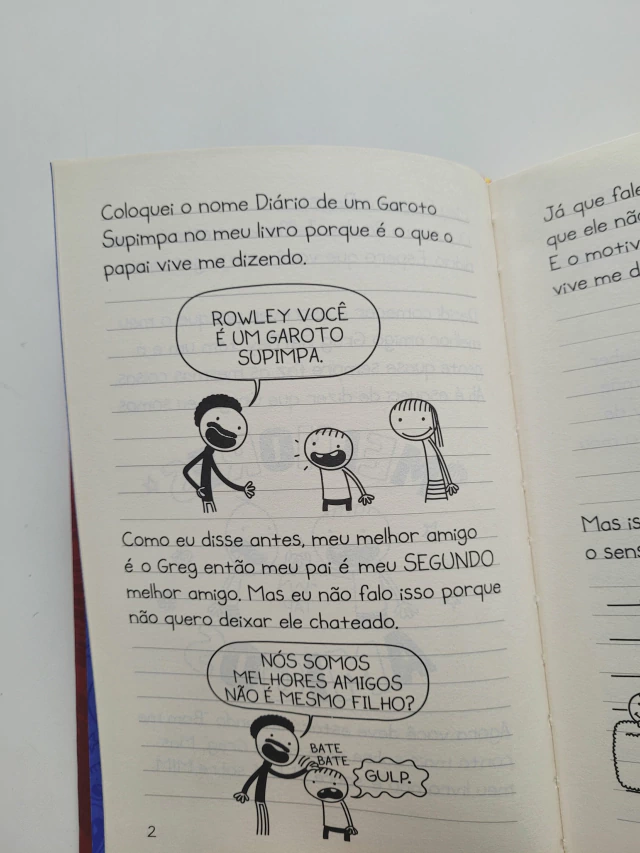 Coloquei o nome Diário de um Garoto
Supimpa no meu livro porque é o que o
papai vive me dizendo.
ROWLEY VOCÊ
É UM GAROTO
SUPIMPA.
Como eu disse antes, meu melhor amigo
é o Greg então meu pai é meu SEGUNDO
melhor amigo. Mas eu não falo isso porque
não quero deixar ele chateado.
NÓS SOMOS
MELHORES AMIGOS
NÃO É MESMO FILHO?
BATE
BATE
GULP.
2
Já que
que ele
E o
vive me
Mas
o